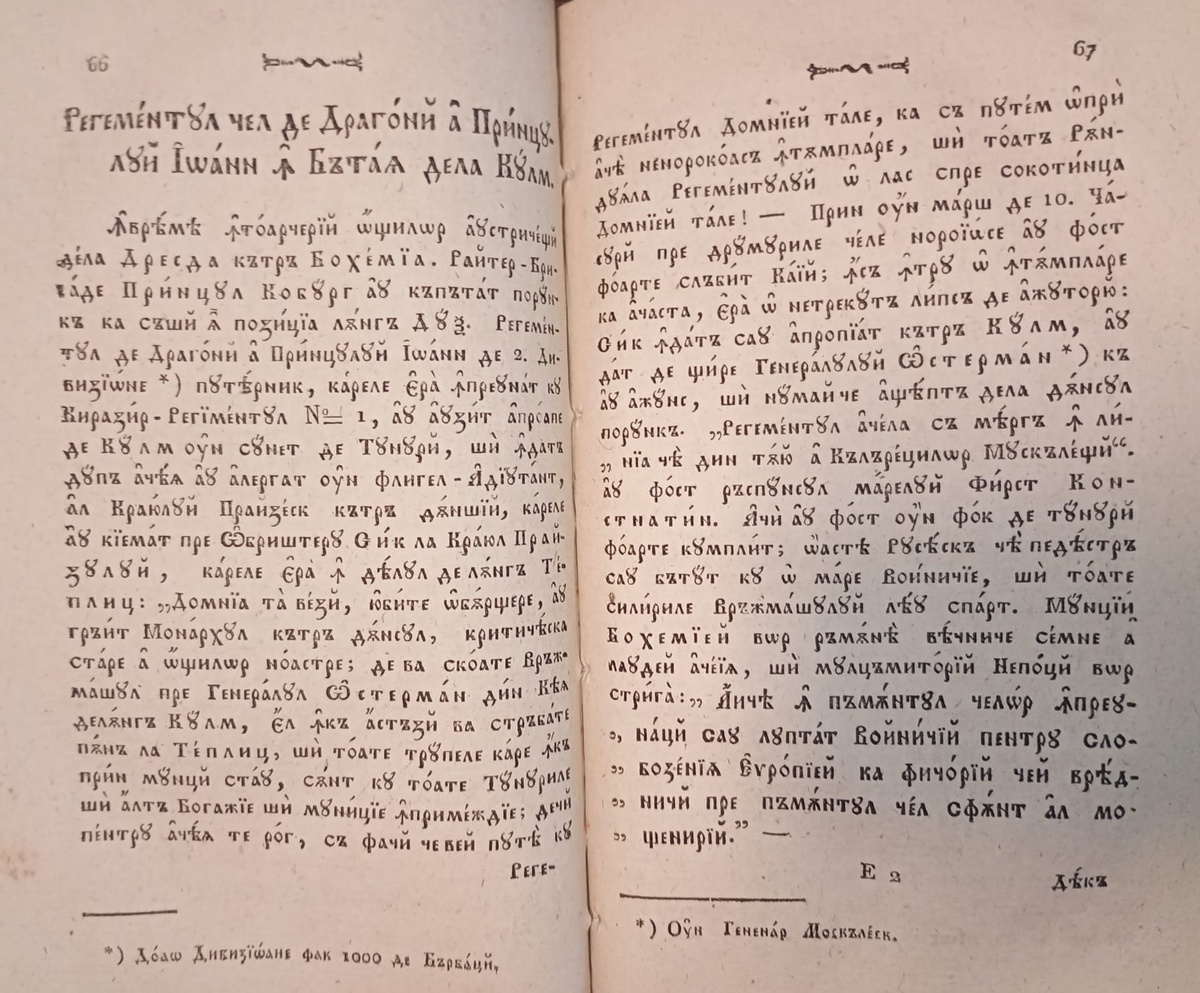 66
Регеме́нтꙋл чел де Драго́нй а̂ При́нцꙋ-
лꙋй І̂ѡа́нн ꙟ̂ Бъта́ѧ дела Кꙋ́лм.
Ꙟ̂вре́мѣ ꙟ̂то́арчерїй ѡ҆́щилѡр аꙋстриче́щй
де́ла Дресда кътръ Бохе́мїа. Райтер-Бри-
га́де При́нцꙋл Кобꙋрг аꙋ къпъта́т порꙋн-
къ ка съшй ꙗ҆ пози́цїа лѫнгъ Дꙋѯ. Регеме́н-
тꙋл де Драго́нй а̂ При́нцꙋлꙋй І̂ѡа́нн де 2. Ди-
визїѡ́не *) пꙋте́рник, ка́реле Є̂ра̀ ꙟ̂преꙋна́т кꙋ
Кирази́р-Регїме́нтꙋл No 1, аꙋ аꙋзи́т апроа́пе
де Кꙋлм оун сꙋнет де Тꙋнꙋрй, шѝ ꙟ̂да́тъ
дꙋпъ аче́ѧ аꙋ алергат оун флигел-Адїꙋта́нт,
ал Кра́юлꙋй Прайзе́ск кътръ дѫншїй, ка́реле
аꙋ кїема́т пре Ѡ҆бриштерꙋ Си́к ла Кра́юл Прай-
зꙋлꙋй, ка́реле Є̂ра̀ ꙟ̂ де́лꙋл де лѫнгъ Те́-
плиц: „Домнїа та̀ ве́зй, юби́те ѡ̂бѫршере, аꙋ
гръи́т Мона́рхꙋл кътръ дѫнсꙋл, критиче́ска
ста́ре а̂ ѡ҆́щилѡр но́астре; де ва ско́ате Връж-
ма́шꙋл пре Генера́лꙋл Ѡ҆стерма́н ди́н Кѣѧ
делѫнгъ Кꙋлм, Є҆л ꙟ̂къ а́стъзй ва стръба́те
пѫнъ ла Те́плиц, шѝ то́ате трꙋпеле ка́ре ꙟ̂къ
при́н мꙋнцй ста́ꙋ, сѫнт кꙋ то́ате Тꙋнꙋриле
шѝ а́лтъ Богажїе шѝ мꙋни́цїе ꙟ̂приме́ждїе; дечй
пе́нтрꙋ аче́ѧ те ро́г, съ фачй че вей пꙋтѐ кꙋ
Реге-
*) До́аѡ Дивизїѡане фак 1000 де Бърба́цй,
67
Регеме́нтꙋл Домнїей та́ле, ка съ пꙋте́м ѡ̂прѝ
ачѐ ненороко́асъ ꙟ̂тѫмпла́ре, шѝ то́атъ Рѫн-
дꙋѧ́ла Регеме́нтꙋлꙋй ѡ̂ лас спре сокоти́нца
Домнїей та́ле! — Прин оун ма́рш де 10. Ча́-
сꙋрй пре дрꙋмꙋриле че́ле нороїѡ́се аꙋ фо́ст
фо́арте слъби́т Ка́їй; ꙟ̂съ ꙟ̂трꙋ ѡ̂ ꙟ̂тѫмпла́ре
ка ача́ста, Є̂ра̀ ѡ̂ нетрекꙋтъ ли́псъ де ажꙋторю:
Си́к ꙟ̂да́тъ саꙋ апропїа́т кътръ Кꙋлм, аꙋ
да́т де щи́ре Генера́лꙋлꙋй Ѡ҆стерма́н *) къ
аꙋ ажꙋнс, шѝ нꙋмайче аще́птъ дела дѫнсꙋл
порꙋнкъ. „Регеме́нтꙋл аче́ла съ ме́ргъ ꙟ̂ ли́-
„ нїа чѣ дин тѫю а̂ Кълъре́цилѡр Мꙋскъле́щй“.
аꙋ фо́ст ръспꙋнсꙋл ма́релꙋй Фи́рст Кон-
стнати́н. Ачѝ аꙋ фо́ст оун фо́к де тꙋнꙋрй
фо́арте кꙋмпли́т; ѡ҆астѣ Рꙋсе́скъ чѣ педе́стръ
саꙋ бътꙋт кꙋ ѡ̂ ма́ре Войни́чїе, шѝ то́ате
силириле Връжма́шꙋлꙋй лѣꙋ спа́рт. Мꙋнцїй
Бохемїей вѡр ръмѫнѣ̀ ве́чниче се́мне а̂
лаꙋдей аче́їѧ, шѝ мꙋлцъмито́рїй Непо́цй вѡр
стрига̀: „ А҆ичѣ ꙟ̂ пъмѫ́нтꙋл челѡ́р ꙟ̂преꙋ-
„ на́цй саꙋ лꙋпта́т Войни́чїй пентрꙋ сло-
„ бозе́нїѧ Еѵро́пїей ка фичо́рїй чей вре́д-
„ ничй пре пъмѫ́нтꙋл че́л сфѫ́нт ал мо-
„ щенирїй.” —
Е 2
Де́къ
*) Оун Гененар Москъле́ск.